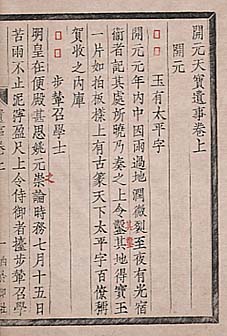 開元天寶遺事卷上
開元
玉有太平字
開元元年内中因雨過地潤微裂至夜有光宿
衛者記其處所曉乃奏之上令鑿其地得寶玉
一片如拍板樣上有古篆天下太平字百僚稱
賀收之内庫
步輦召學士
明皇在便殿甚思姚元崇論時務七月十五日
苦雨不止泥濘盈尺上令侍御者擡步輦召學